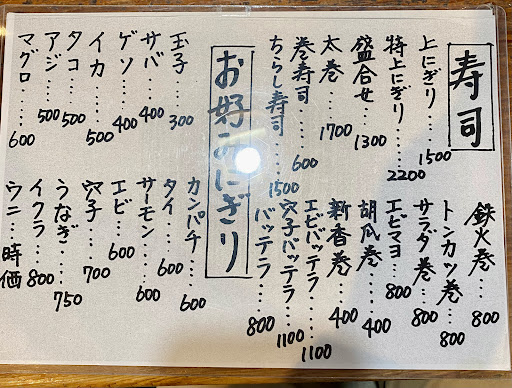 寿司
上にぎり……1500
特上にぎり……2200
盛合せ……1300
太巻……1700
巻寿司……600
ちらし寿司……1500
鉄火巻……800
トンカツ巻……800
サラダ巻……800
エビマヨ……800
胡瓜巻……400
新香巻……400
エビバッテラ……1100
穴子バッテラ……1100
バッテラ……800
お好みにぎり
玉子……300
サバ……400
ゲソ……400
イカ……500
タコ……500
アジ……500
マグロ……600
カンパチ……600
タイ……600
サーモン……600
エビ……600
穴子……700
うなぎ……750
イクラ……800
ウニ……時価